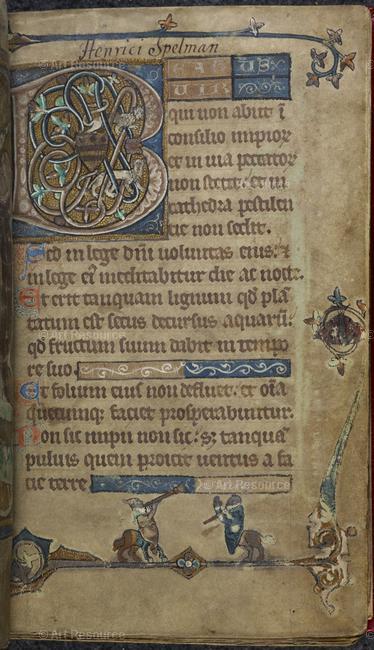 Henrici Spelman
B EATUS
VIR
qui non abiit ī
consilio impior
et in via peccator
non stetit. et in
cathedra pestilen
cie non sedit.
Sed in lege dn̄i voluntas eius. ⁊
in lege ei᷒ meditabitur die ac noctꝛ.
Et erit tanquam lignum qd̄ plā
tatum est secus decursus aquarū.
qd̄ fructum suum dabit in tempo
re suo.
Et folium eius non defluet. et oīa
quecumqꝫ faciet prosperabuntur.
Non sic impii non sic. sꝫ tanquā
puluis quem proicit ventus a fa
cie terre
© Art Resource